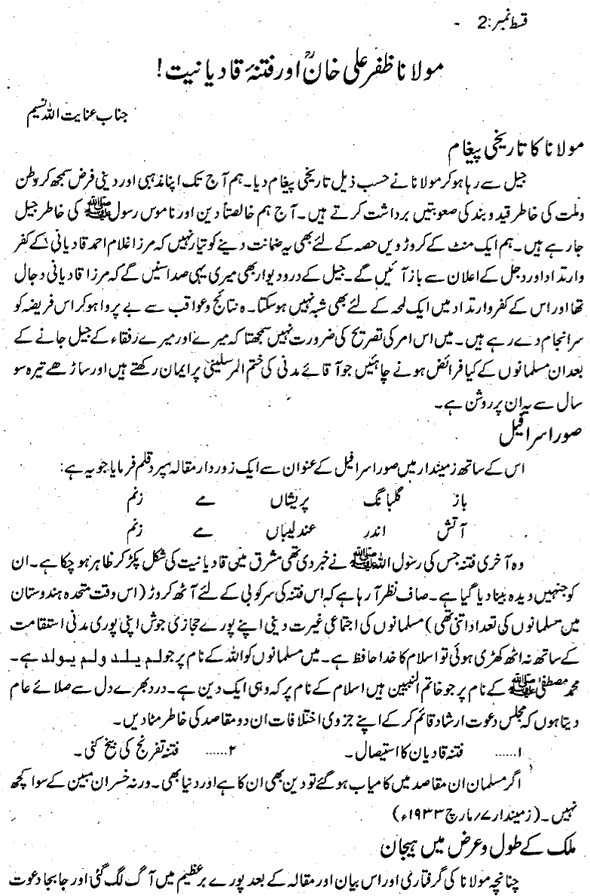 قسط نمبر:2 -
مولانا ظفر علی خانؒ اور فتنۂ قادیانیت!
جناب عنایت اللہ نسیم
مولانا کا تاریخی پیغام
جیل سے رہا ہو کر مولانا نے حسب ذیل تاریخی پیغام دیا۔ ہم آج تک اپنا مذہبی اور دینی فرض سمجھ کر وطن
وملت کی خاطر قید وبند کی صعوبتیں برداشت کرتے ہیں۔ آج ہم خالصتاً دین اور ناموس رسول ﷺ کی خاطر جیل
جا رہے ہیں۔ ہم ایک منٹ کے کروڑ ویں حصہ کے لئے بھی یہ ضمانت دینے کو تیار نہیں کہ مرزا غلام احمد قادیانی کے کفر
وارتداد اور دجل کے اعلان سے باز آئیں گے۔ جیل کے درودیوار بھی میری یہی صدا سنیں گے کہ مرزا قادیانی دجال
تھا اور اس کے کفر وارتداد میں ایک لمحہ کے لئے بھی شبہ نہیں ہو سکتا۔ ہ نتائج وعواقب سے بے پروا ہو کر اس فریضہ کو
سرانجام دے رہے ہیں۔ میں اس امر کی تصریح کی ضرورت نہیں سمجھتا کہ میرے اور میرے رفقاء کے جیل جانے کے
بعد ان مسلمانوں کے کیا فرائض ہونے چاہئیں جو آقائے مدنی کی ختم المرسلینی پر ایمان رکھتے ہیں اور ساڑھے تیرہ سو
سال سے یہ ان پر روشن ہے۔
صور اسرافیل
اس کے ساتھ زمیندار میں صور اسرافیل کے عنوان سے ایک زور دار مقالہ سپرد قلم فرمایا جو یہ ہے:
باز گلبانگ پریشاں مے زنم
آتش اندر عندلیباں مے زنم
وہ آخری فتنہ جس کی رسول اللہ ﷺ نے خبر دی تھی مشرق میں قادیانیت کی شکل پکڑ کر ظاہر ہو چکا ہے۔ ان
کو جنہیں دیدہ بینا دیا گیا ہے۔ صاف نظر آ رہا ہے کہ اس فتنہ کی سرکوبی کے لئے آٹھ کروڑ (اس وقت متحدہ ہندوستان
میں مسلمانوں کی تعداد اتنی تھی) مسلمانوں کی اجتماعی غیرت دینی اپنے پورے حجازی جوش اپنی پوری مدنی استقامت
کے ساتھ نہ اٹھ کھڑی ہوئی تو اسلام کا خدا حافظ ہے۔ میں مسلمانوں کو اللہ کے نام پر جو لم یلد ولم یولد ہے۔
محمد مصطفیٰ ﷺ کے نام پر جو خاتم النبیین ہیں اسلام کے نام پر کہ وہی ایک دین ہے۔ درد بھرے دل سے صلائے عام
دیتا ہوں کہ مجلس دعوت ارشاد قائم کر کے اپنے جزوی اختلافات ان دو مقاصد کی خاطر مٹا دیں۔
۱...... فتنہ قادیان کا استیصال۔ ۲...... فتنہ تفرنج کی بیخ کنی۔
اگر مسلمان ان مقاصد میں کامیاب ہو گئے تو دین بھی ان کا ہے اور دنیا بھی۔ ورنہ خسران مبین کے سوا کچھ
نہیں۔ (زمیندار ۷؍مارچ ۱۹۳۳ء)
ملک کے طول وعرض میں ہیجان
چنانچہ مولانا کی گرفتاری اور اس بیان اور مقالہ کے بعد پورے برعظیم میں آگ لگ گئی اور جابجا دعوت